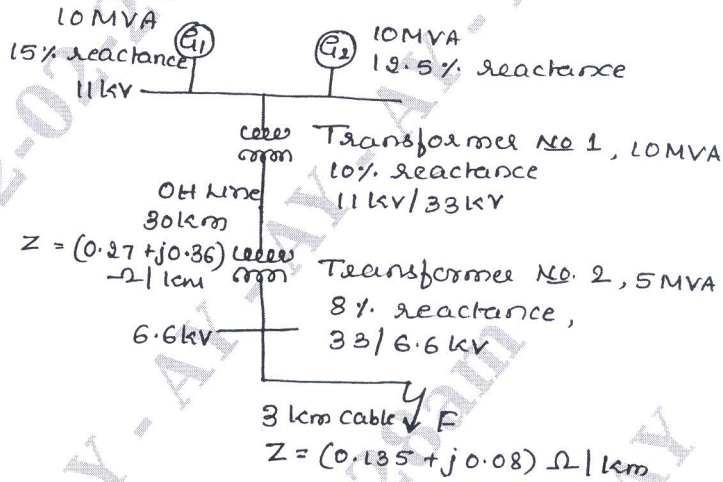 10 MVA
15% reactance
11 kV
G1
G2
10 MVA
12.5% reactance
Transformer No 1, 10 MVA
10% reactance
11 kV/33 kV
OH Line
30 km
Z = (0.27 + j0.36)
Ω/km
Transformer No. 2, 5 MVA
8% reactance,
33/6.6 kV
6.6 kV
3 km cable F
Z = (0.135 + j 0.08) Ω/km
22-02-2
AY - AY - AY
28am